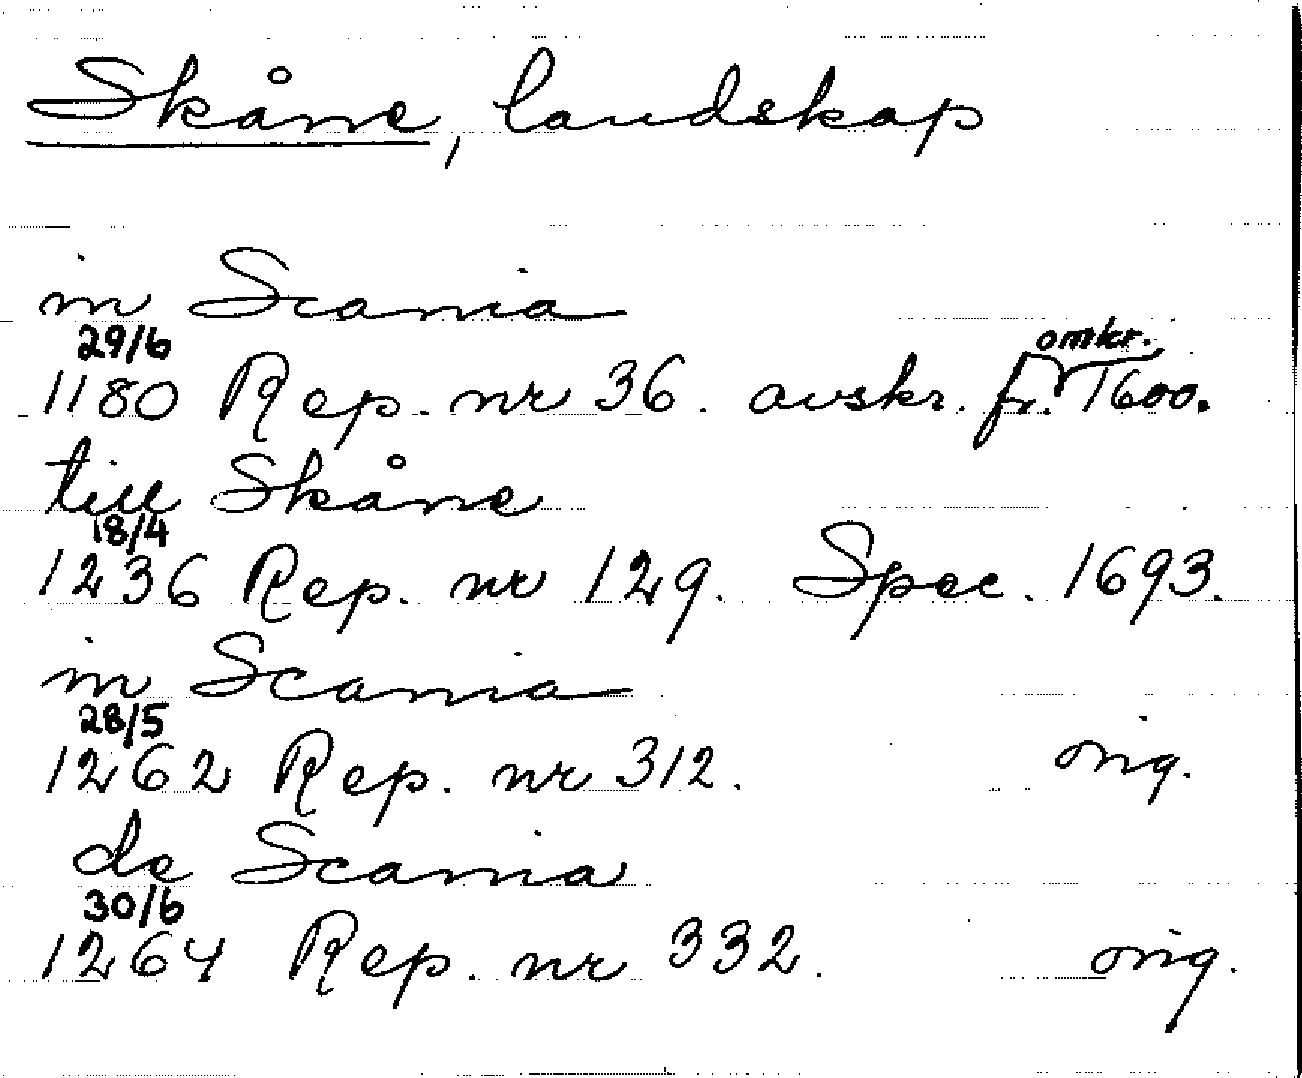 Skåne, landskap
in Scania
29/6 omkr.
1180 Rep. nr 36. avskr. fr. 1600.
till Skåne
18/4
1236 Rep. nr 129. Spec. 1693.
in Scania
28/5
1262 Rep. nr 312. orig.
de Scania
30/6
1264 Rep. nr 332. orig.